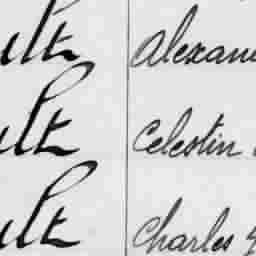 ult Alexan
ult Celestin
ult Charles